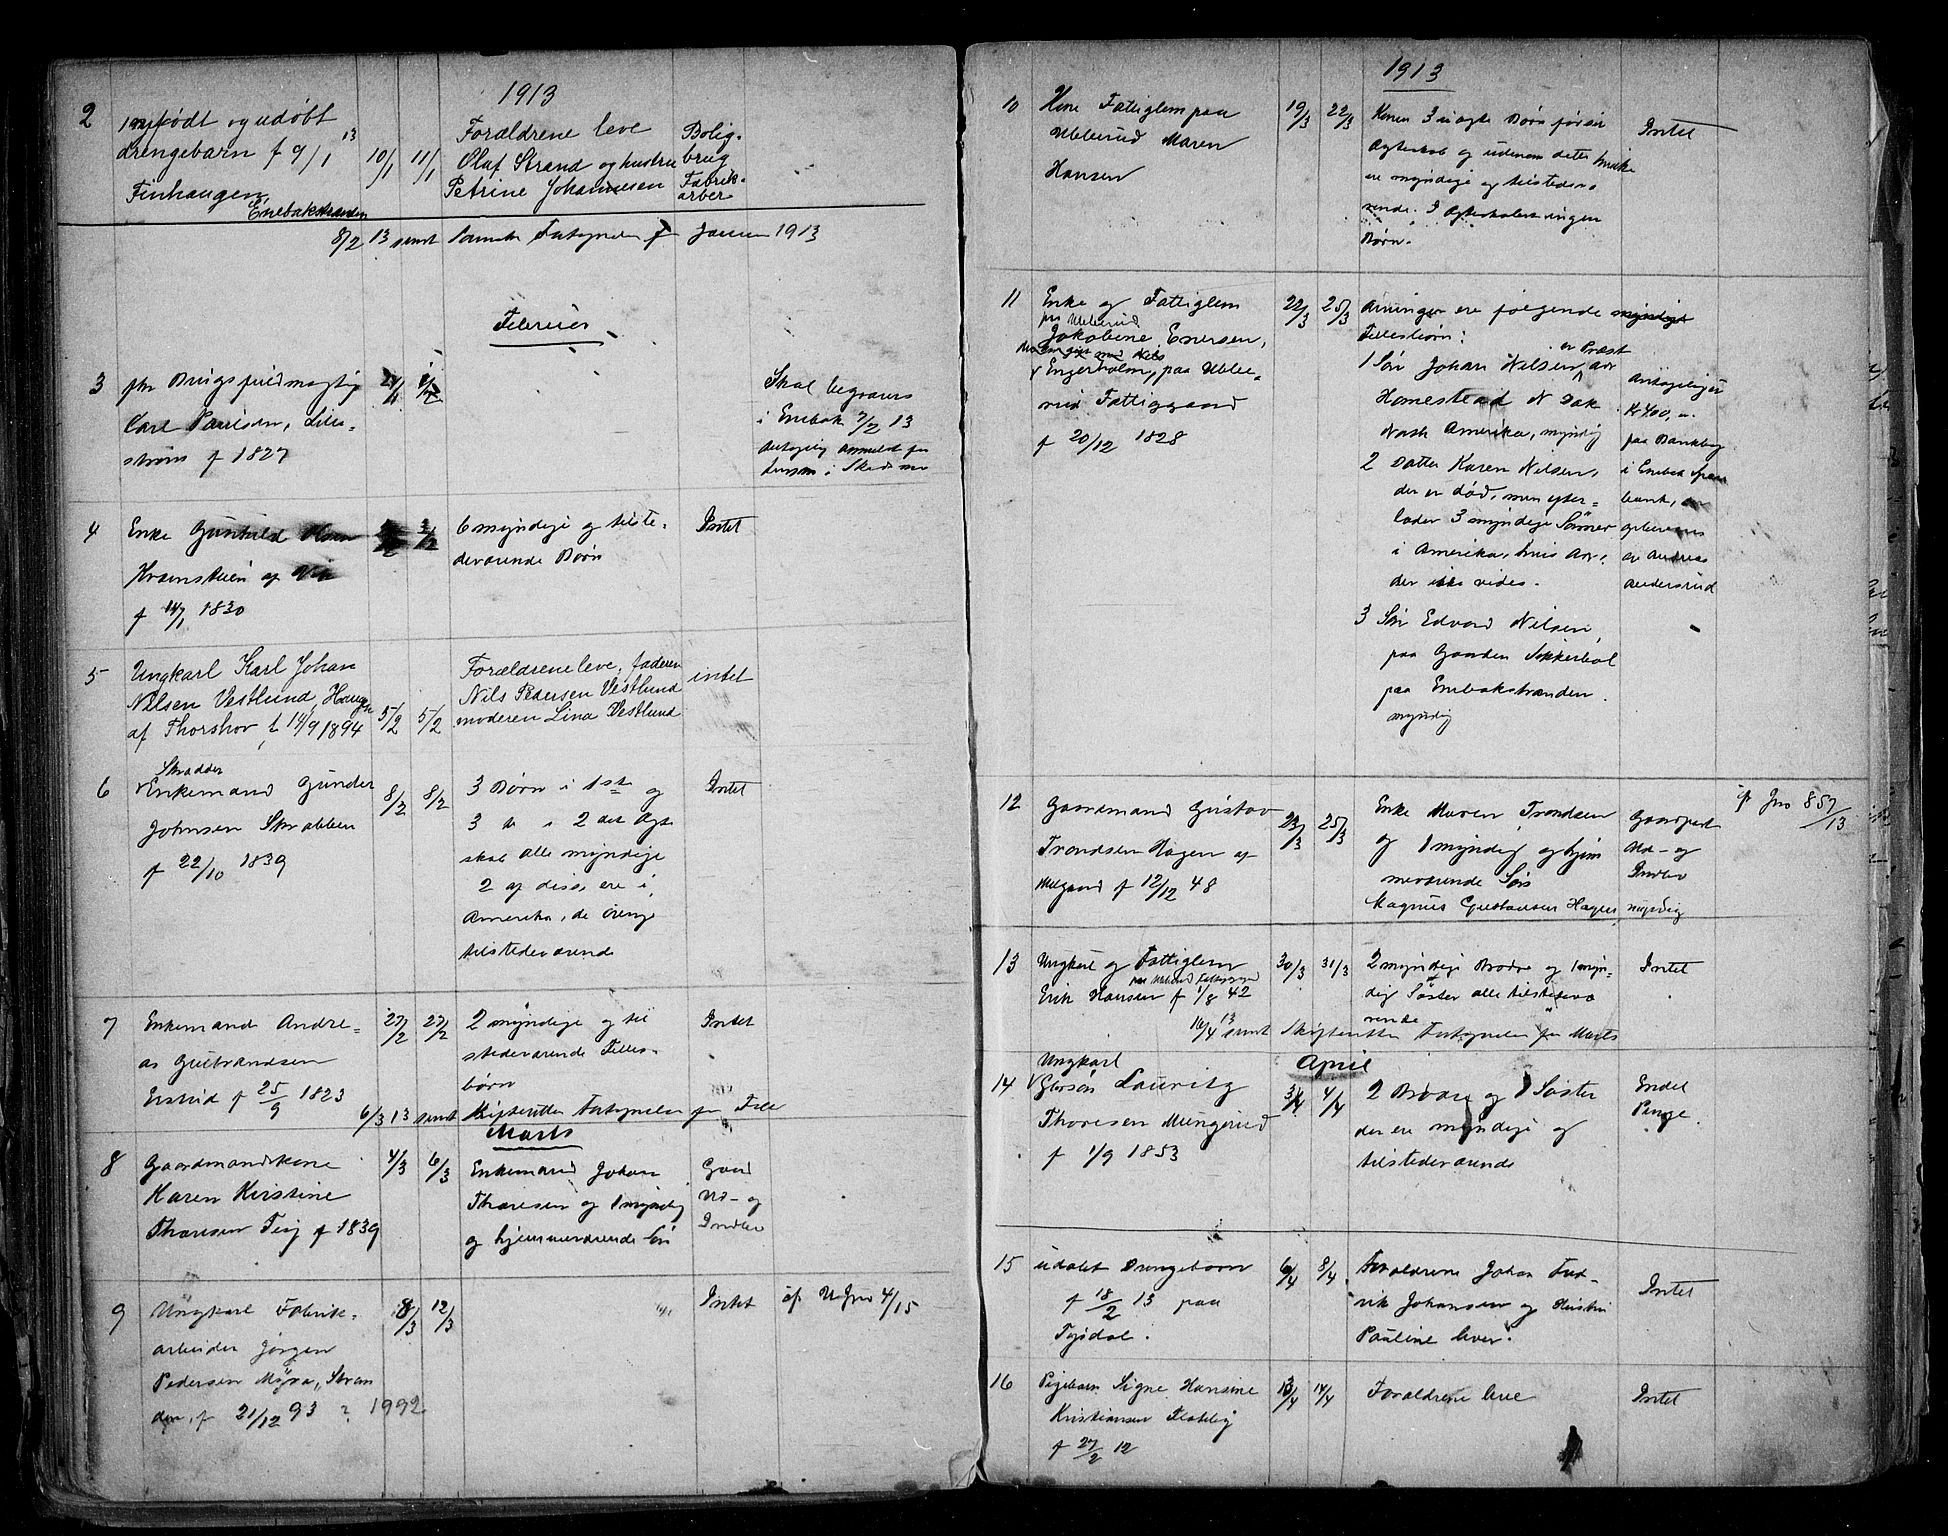 1913
2 nyfødt og udøbt
drengebarn f 9/1 13 10/1 11/1
Finhaugen,
Enebakstranden
Forældrene leve
Olaf Strand og hustru
Petrine Johannesen
Bolig-
brug
Fabrik-
arber
8/2 13 sendt Fortegnelse f Januar 1913
Februar
3 fhv Brugsfuldmægtig
Carl Paulsen, Lille-
strøm f 1827
Skal begraves
i Enebak 7/2 13
anmeldt
i Skedsmo
4 Enke Gunhild
f 14/1 1830
6 myndige og tilste-
deværende Børn
Intet
5 Ungkarl Karl Johan
Nilsen Vestlund, Haugen
af Thorshov, f. 14/9 1894 5/2 5/2
Forældrene leve, faderen
Nils Pedersen Vestlund
moderen Lina Vestlund
intet
Skrædder
6 Enkemand Gunder 8/2 8/2
Johnsen Skrabben
f 22/10 1839
3 Børn i 1ste og
3 i 2det Ægte
skab alle myndige
2 af disse ere i
Amerika, de øvrige
tilstedeværende
Intet
7 Enkemand Andre-
as Gulbrandsen
f 25/9 1823
27/2 27/2
2 myndige og til
stedeværende Fælles-
børn
Intet
6/3 13 sendt Skifteretten Fortegnelse for Febr
Marts
8 Gaardmandskone 4/3 6/3
Karen Kirstine
Thoresen Teig f 1839
Enkemand Johan
Thoresen og 1 myndig
og hjemmeværende Søn
Gaard
Ud- og
Indbo
9 Ungkarl Fabrik- 8/3 12/3
arbeider Jørgen
Pedersen Myra, Stran
den, f 21/12 93 ? 1992
Intet
4/15
1913
10 Kone Fattiglem paa 19/3 22/3
Ubberud Maren
Hansen
Konen 3 uægte Børn før sit
Ægteskab og udenom dette hvilke
ere myndige og tilstedevæ
rende. I Ægteskabet ingen
Børn.
Intet
11 Enke og Fattiglem 22/3 25/3
paa Ubberud
Jakobine Enersen,
Engerholm, paa Ubbe-
rud Fattiggaard
f 20/12 1828
Arvinger ere følgende myndige
Fællesbørn:
1 Søn Johan Nilsen, er Præst
Homestead N Dak
Nord Amerika, myndig
2 Datter Karen Nilsen,
der er død, men efter-
lader 3 myndige Sønner
i Amerika, hvis Adr.
der ikke vides.
3 Søn Edvard Nilsen,
paa Gaarden Sikkerbøl
paa Enebakstranden.
myndig
Antagelig
Kr 400,
paa Bankbog
i Enebak Spare
bank,
Andreas
Anderstad
12 Gaardmand Gustav 23/3 25/3
Trondsen Hagen af
f 12/12 48
Enke Maren Trondsen
og 1 myndig og hjem
meværende Søn
Magnus Gustavsen Hagen, myndig
Gaardpart
Ud- og
Indbo
jf Jno 857/13
13 Ungkarl og Fattiglem 30/3 31/3
paa Ubberud Fattiggaard
Erik Hansen f 1/8 42
2 myndige Brødre og 1 myn-
dig Søster alle tilstedevæ
rende
Intet
16/4 13 sendt Skifteretten Fortegnelse for Marts
April
Ungkarl
14 Lauritz 3/4 4/4
Thoresen Mungerud
f 1/9 1853
2 Brødre og 1 Søster
der ere myndige og
tilstedeværende
Endel
Penge.
15 udøbt Drengebarn 6/4 8/4
f 18/2 13 paa
Tysdal.
Forældrene Johan Fred-
rik Johansen og Hustru
Pauline lever.
Intet
16 Pigebarn Signe Hansine 13/4 14/4
Kristiansen Flateby
f 27/2 12
Forældrene leve
Intet